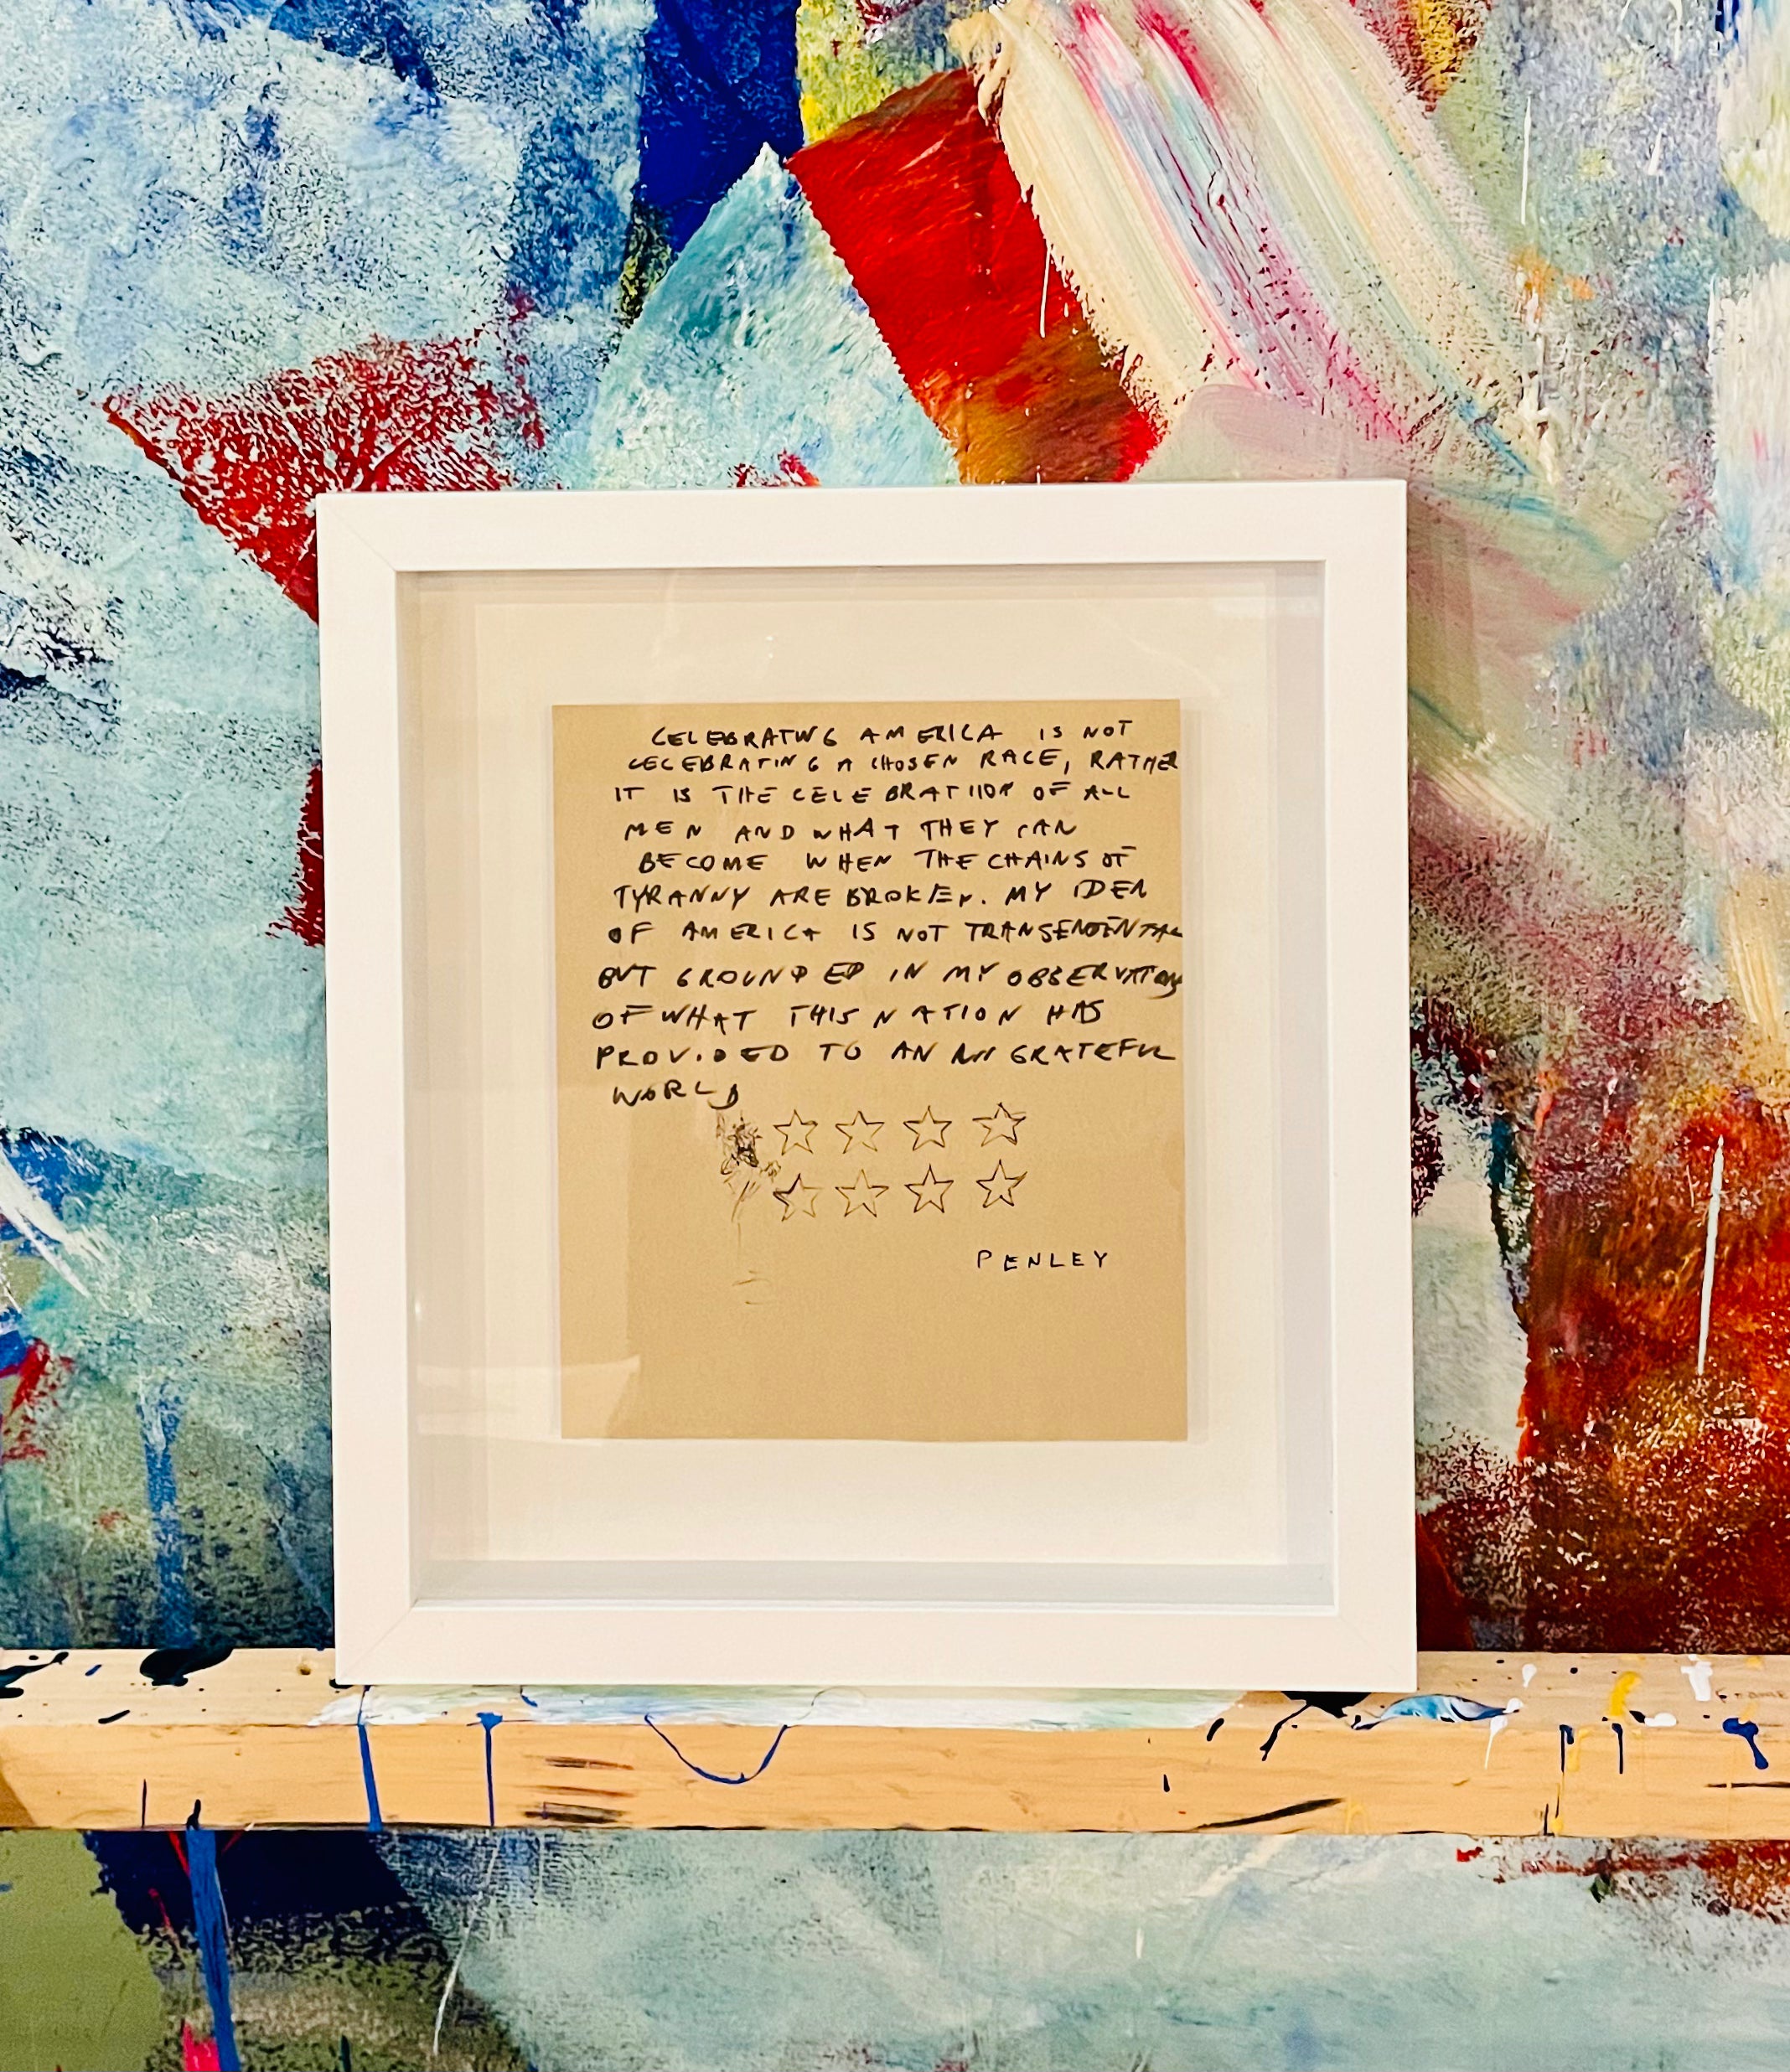 CELEBRATING AMERICA IS NOT
CELEBRATING A CHOSEN RACE, RATHER
IT IS THE CELEBRATION OF ALL
MEN AND WHAT THEY CAN
BECOME WHEN THE CHAINS OF
TYRANNY ARE BROKEN. MY IDEA
OF AMERICA IS NOT TRANSENDENTAL
BUT GROUNDED IN MY OBSERVATIONS
OF WHAT THIS NATION HAS
PROVIDED TO AN UNGRATEFUL
WORLD
PENLEY